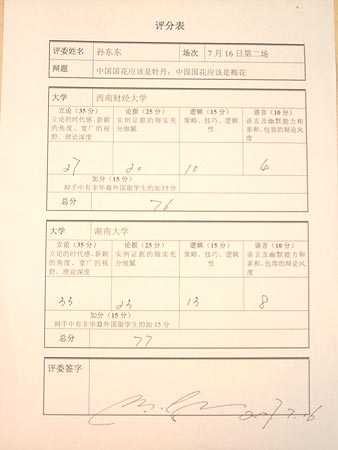 评分表
评委姓名 孙东东 场次 7月16日第二场
辩题 中国国花应该是牡丹;中国国花应该是梅花
大学 西南财经大学
立论(35分) 论据(25分) 逻辑(15分) 语言(10分)
立论的时代感、新颖 实例证据的翔实充 策略、技巧、逻辑 语言及幽默能力和
的角度、宽广的视 分细腻 性 亲和、包容的辩论风
野、理论深度 度
27 20 10 4
加分(15分)
辩手中有非华裔外国留学生的加15分
总分 76
大学 湖南大学
立论(35分) 论据(25分) 逻辑(15分) 语言(10分)
立论的时代感、新颖 实例证据的翔实充 策略、技巧、逻辑 语言及幽默能力和
的角度、宽广的视 分细腻 性 亲和、包容的辩论风
野、理论深度 度
33 23 13 8
加分(15分)
辩手中有非华裔外国留学生的加15分
总分 77
评委签字